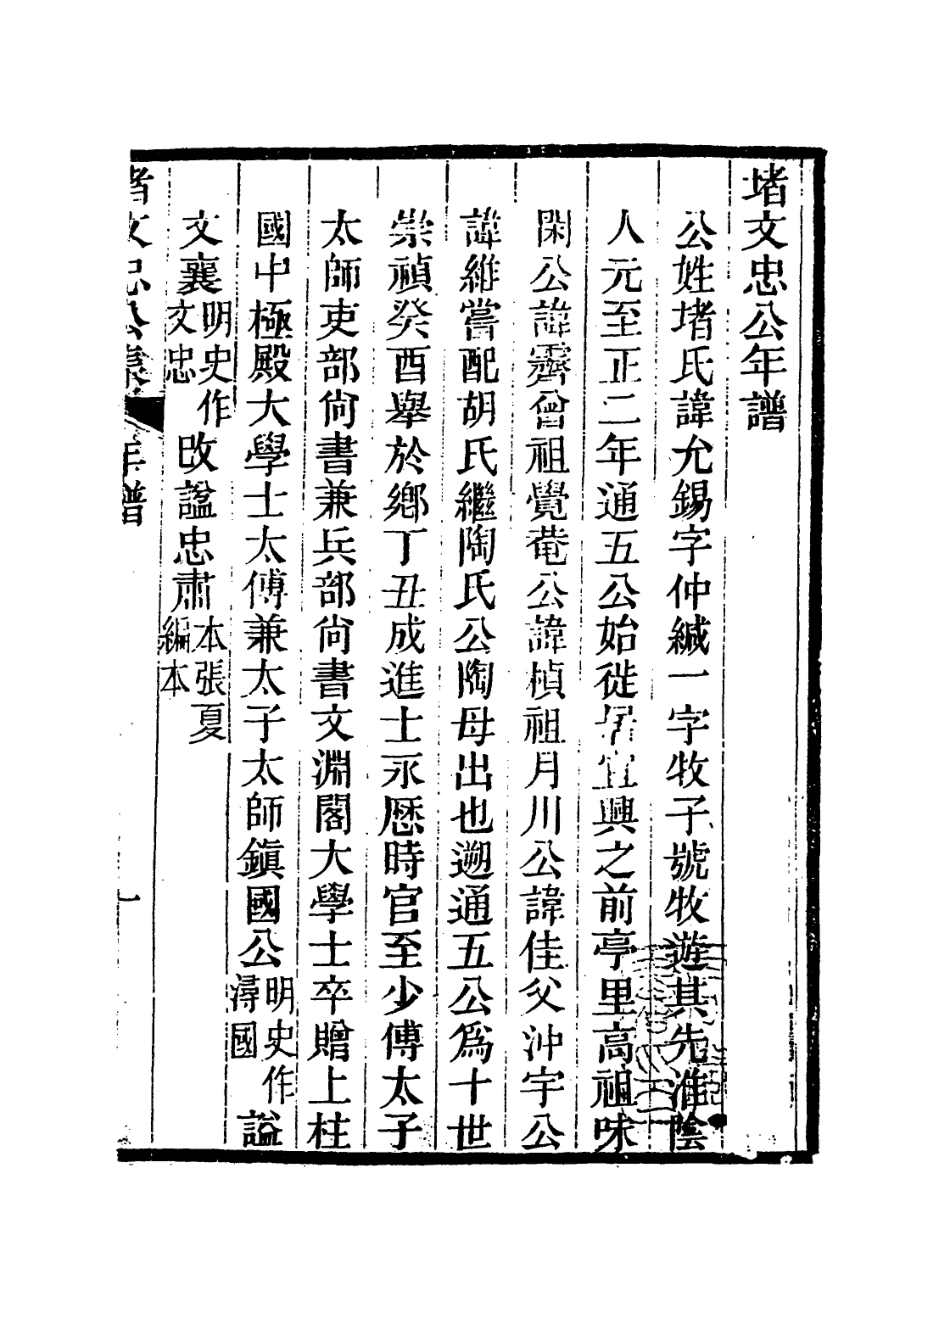 堵文忠公年譜
公姓堵氏諱允錫字仲緘一字牧子號牧遊其先淮陰
人元至正二年通五公始徙居宜興之前亭里高祖味
閑公諱霽曾祖覺菴公諱楨祖月川公諱佳父沖宇公
諱維嘗配胡氏繼陶氏公陶母出也遡通五公爲十世
崇禎癸酉舉於鄉丁丑成進士永厯時官至少傅太子
太師吏部尙書兼兵部尙書文淵閣大學士卒贈上柱
國中極殿大學士太傅兼太子太師鎭國公明史作潯國諡
文襄明史作文忠改諡忠肅本張夏編本
堵文忠公集 年譜 一